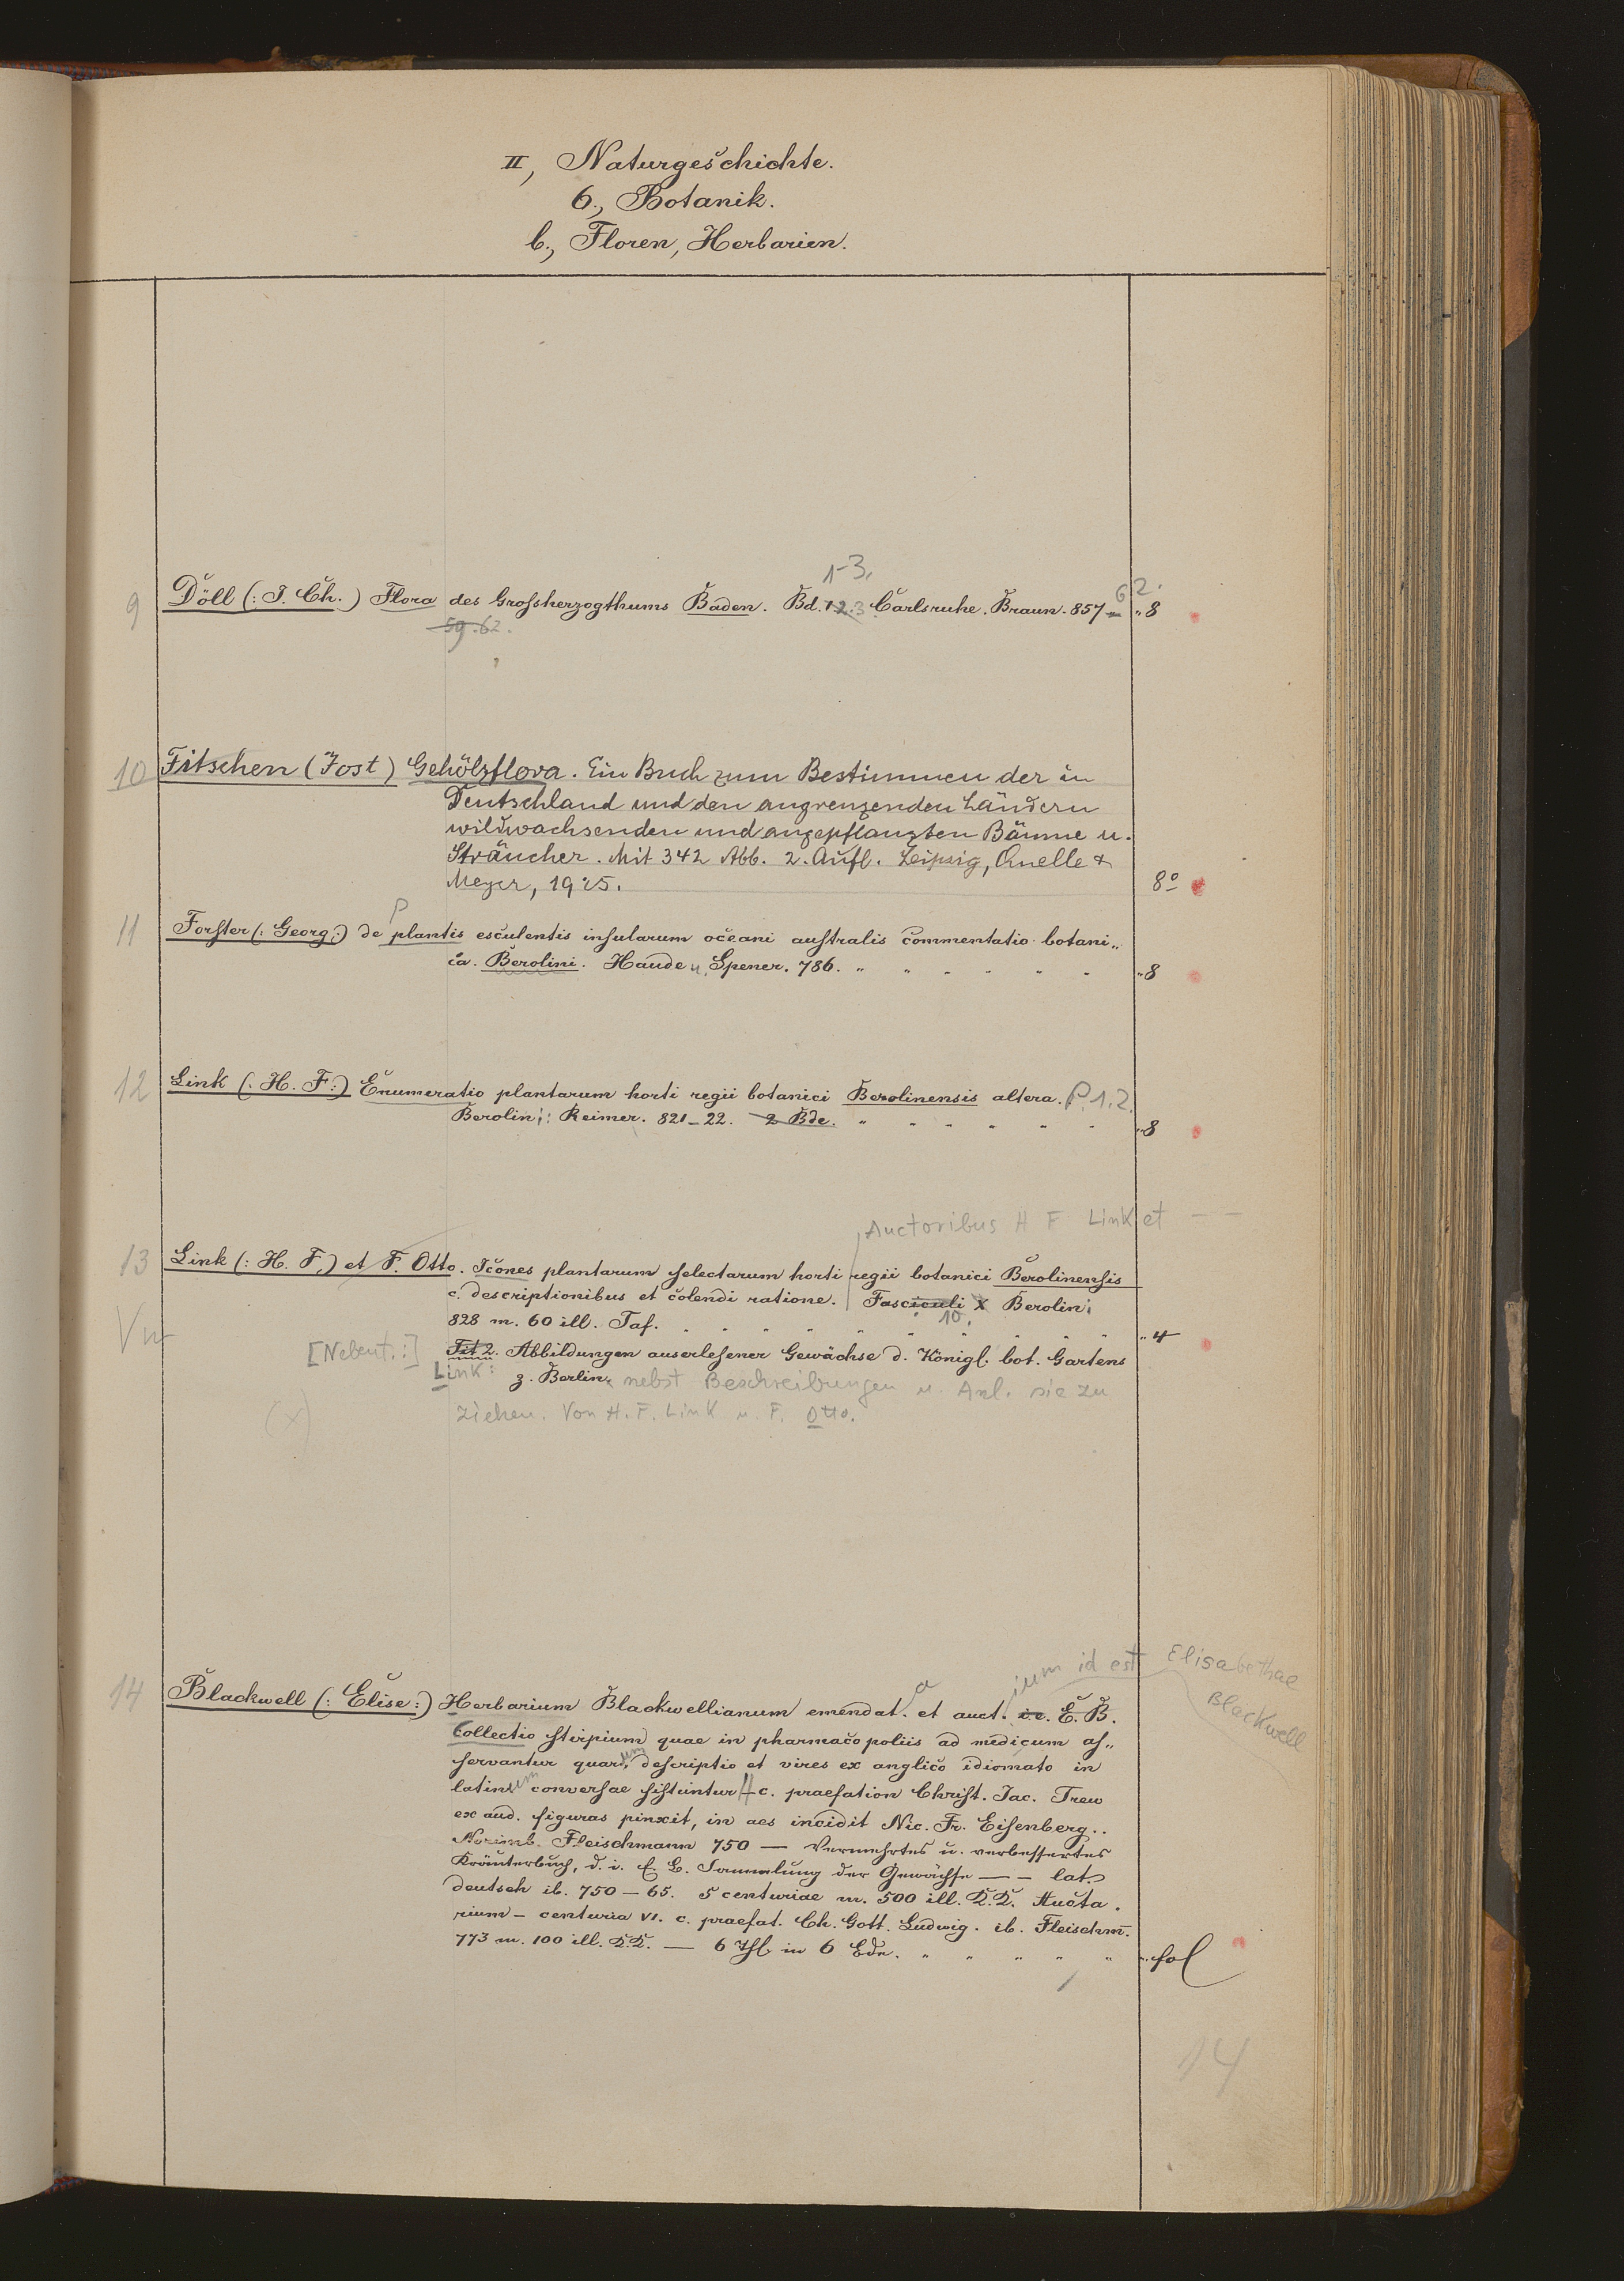 II, Naturgeschichte.
6., Botanik.
b., Floren, Herbarien.
1-3.
62.
9 Döll (: J. Ch.) Flora des Grossherzogthums Baden. Bd. 1 2. 3. Carlsruhe. Braun. 857- „ 8
59. 62.
10 Fitschen (Jost) Gehölzflora. Ein Buch zum Bestimmen der in
Deutschland und den angrenzenden Ländern
wildwachsenden und angepflanzten Bäume u.
Sträucher. Mit 342 Abb. 2. Aufl. Leipzig, Quelle &
Meyer, 1925. 8º
P
11 Forster (: Georg:) de plantis esculentis insularum oceani australis commentatio botani„
ca. Berolini. Haude u. Spener. 786. „ „ „ „ „ „ „ 8
12 Link (: H. F:) Enumeratio plantarum horti regii botanici Berolinensis altera. P. 1. 2.
Berolini: Reimer. 821-22. 2 Bde. „ „ „ „ „ „ „ 8
Auctoribus H F Link et — —
13 Link (: H. F.) et F. Otto. Icones plantarum selectarum horti regii botanici Berolinensis
c. descriptionibus et colendi ratione. Fasciculi X Berolini
10.
828 m. 60 ill. Taf. „ „ „ „ „ „ „ „ „ „ „ „ 4
[Nebent.:] Tit 2. Abbildungen auserlesener Gewächse d. Königl. bot. Gartens
Link: z. Berlin. nebst Beschreibungen u. Anl. sie zu
(x) ziehen. Von H. F. Link u. F. Otto.
ium id est Elisabethae
Blackwell
a
14 Blackwell (: Elise:) Herbarium Blackwellianum emendat. et auct. i.e. E. B.
Collectio stirpium quae in pharmacopoliis ad medicum as„
servantur quarum descriptio et vires ex anglico idiomato in
latinum conversae sistuntur c. praefation Christ. Jac. Trew
excud. figuras pinxit, in aes incidit Nic. Fr. Eisenberg..
Norimb. Fleischmann 750 — Vermehrtes u. verbessertes
Kräuterbuch, d. i. E. B. Sammlung der Gewächse — — lat.
deutsch ib. 750-65. 5 centuriae m. 500 ill. K.K. Aucta„
rium - centuria VI. c. praefat. Ch. Gott. Ludwig. ib. Fleischm.
773 m. 100 ill. K.K. — 6 Thl in 6 Bdn. „ „ „ „ „ „ fol
14